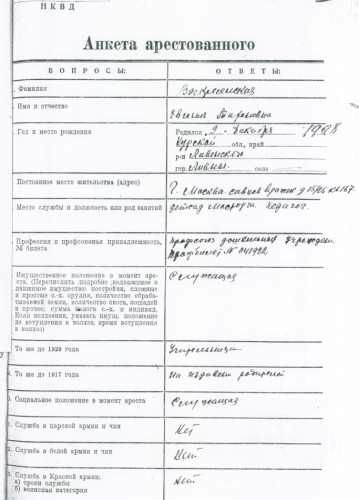 НКВД
Анкета арестованного
ВОПРОСЫ: ОТВЕТЫ:
Фамилия Воскресенская
Имя и отчество Евгения
Год и место рождения Родилась 9 декабря
Курской обл., край
р-н Ливенского
гор. Ливны село
Постоянное место жительства (адрес) Г. Москва
Место службы и должность или род занятий детсад педагог.
Профессия и профсоюзная принадлежность, № билета Профсоюз дошкольных учрежден.
Профбилет №
Имущественное положение в момент ареста. (Перечислить подробно недвижимое и движимое имущество: постройки, сложные и простые с.-х. орудия, количество обрабатываемой земли, количество скота, лошадей и прочее; сумма налога с.-х. и индивид. Если колхозник, указать имущ. положение до вступления в колхоз, время вступления в колхоз) Служащая
То же до 1929 года Учительница
То же до 1917 года На иждивен родителей
Социальное положение в момент ареста Служащая
1. Служба в царской армии и чин Нет
2. Служба в белой армии и чин Нет
3. Служба в Красной армии: Нет
а) сроки службы
б) воинская категория